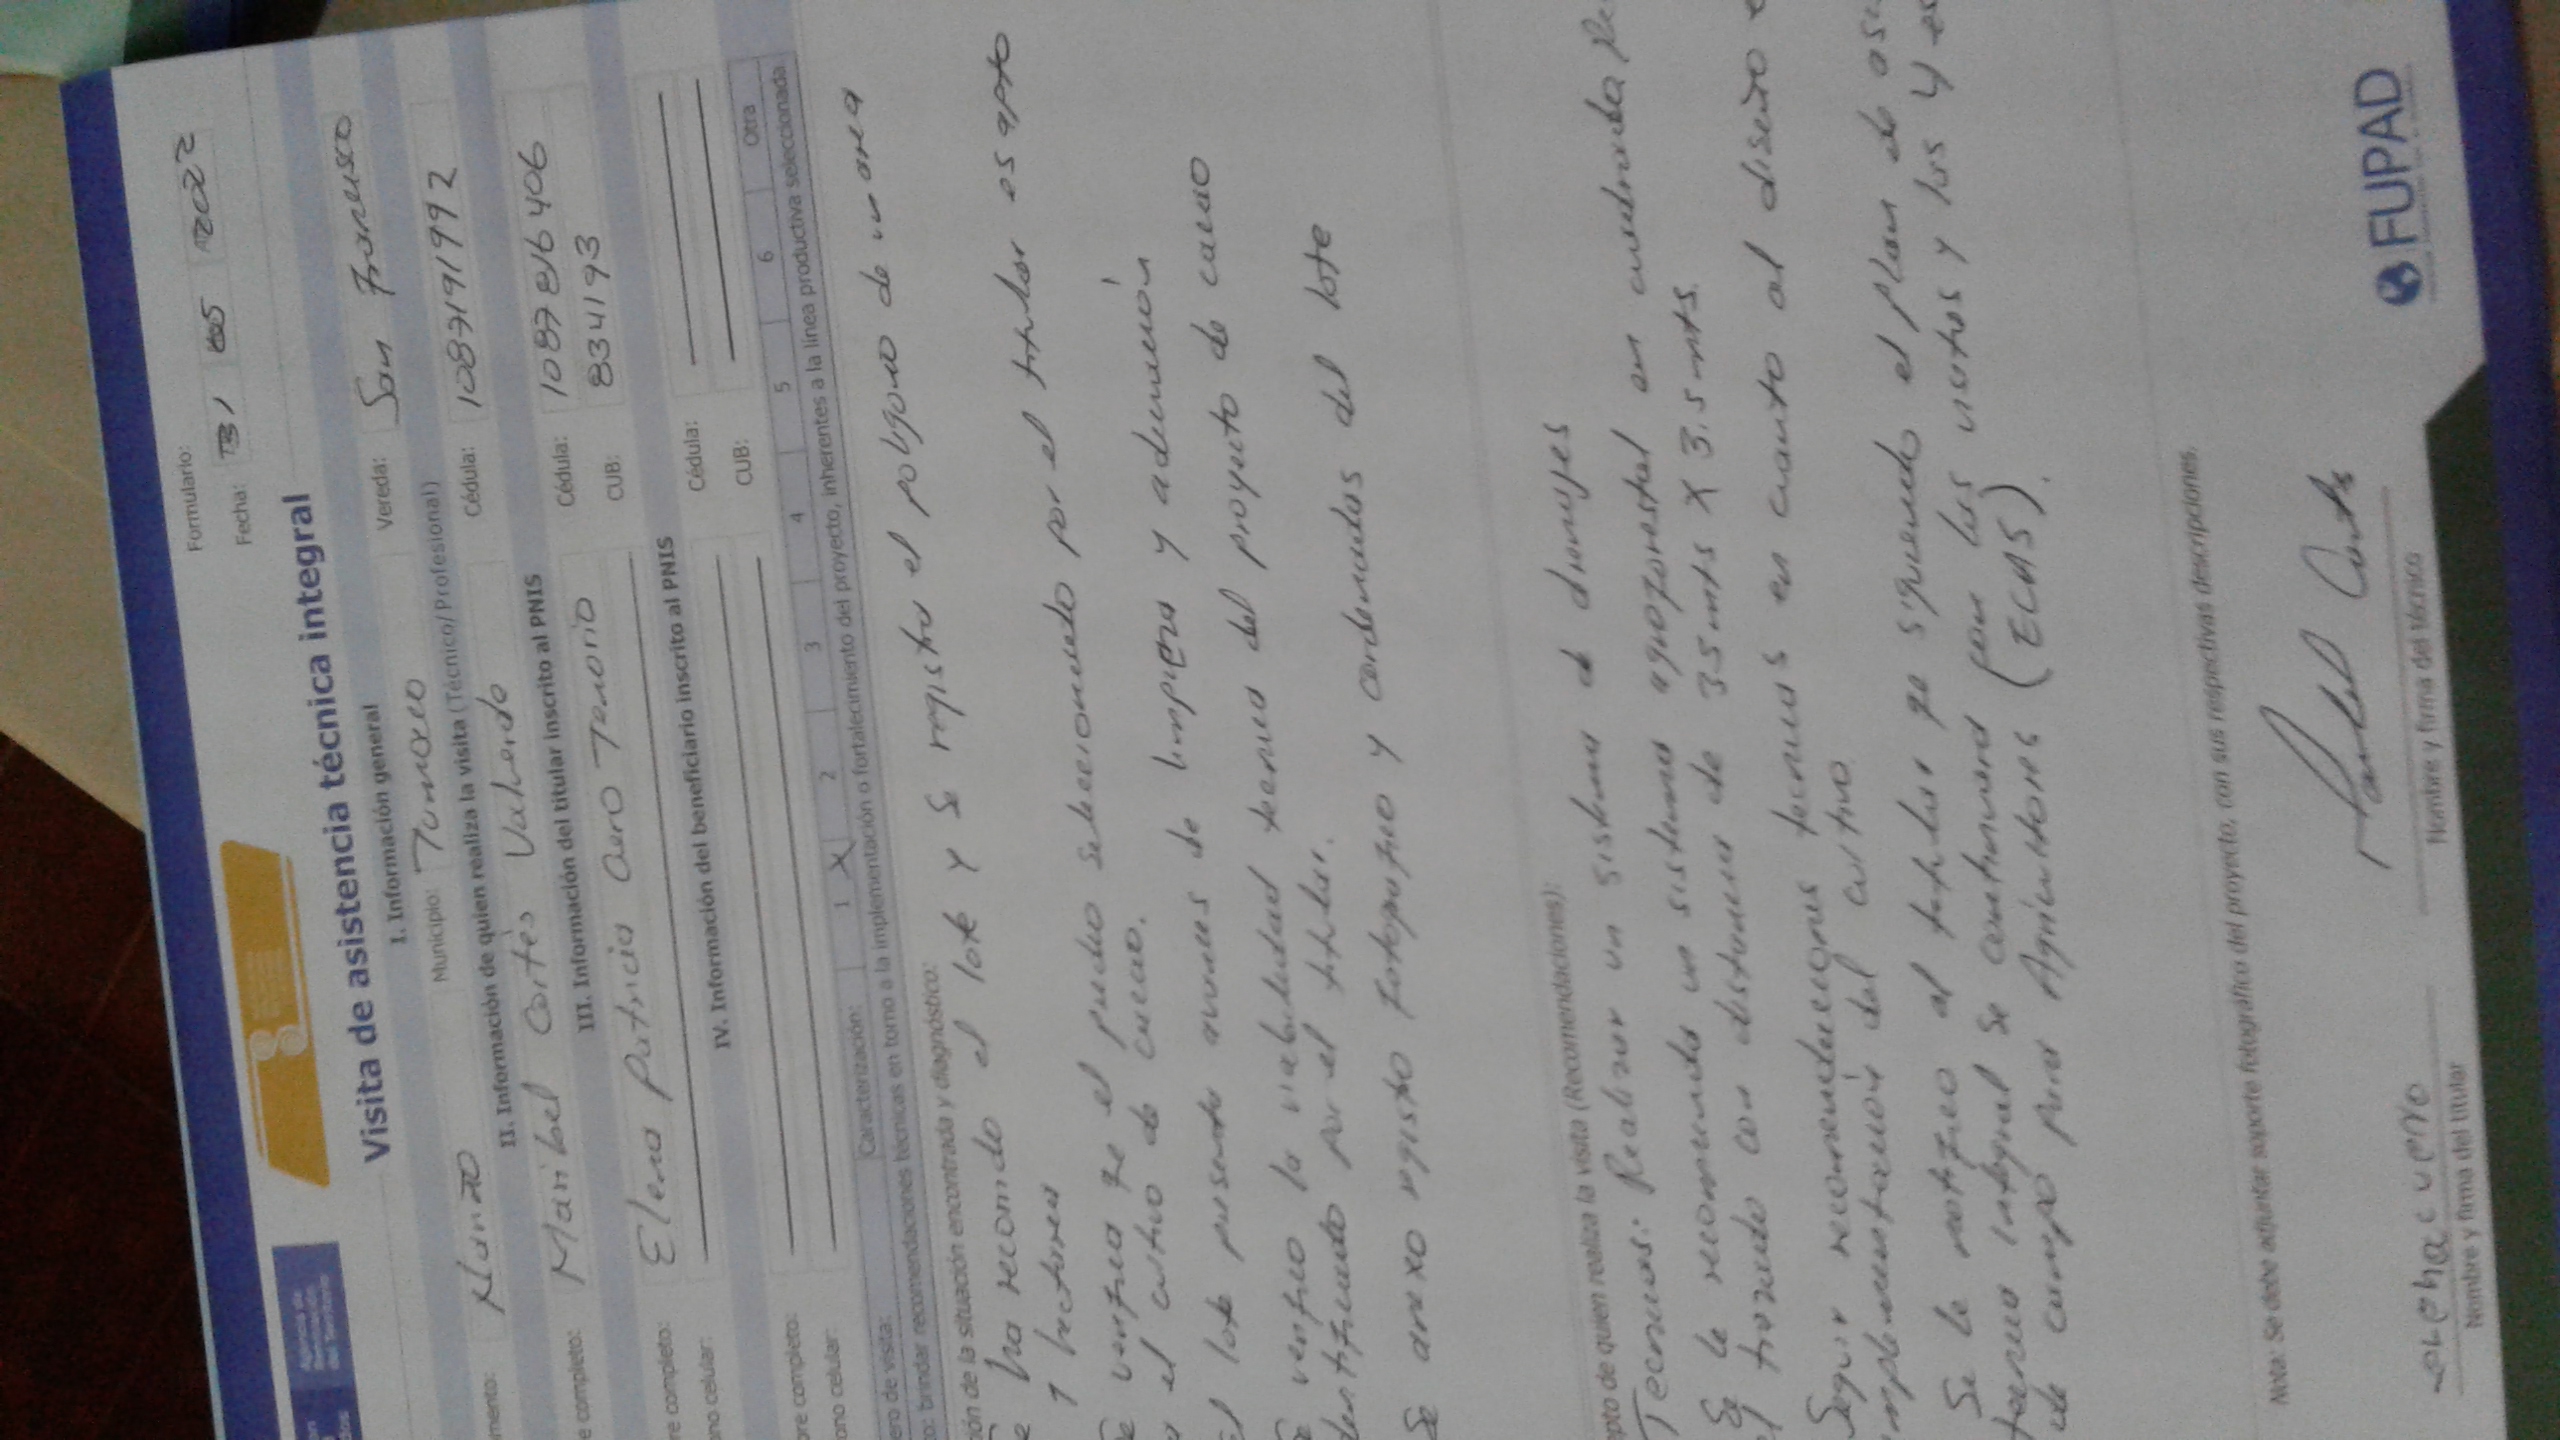 Formulario:
Fecha: 31 05 2022
Agencia de
Renovación
del Territorio
Visita de asistencia técnica integral
I. Información general
Nariño Municipio: Tumaco Vereda: San Francisco
II. Información de quien realiza la visita (Técnico/Profesional)
completo: Maribel Cortés Valverde Cédula: 1087191992
III. Información del titular inscrito al PNIS
completo: Elena Patricia Cuero Tenorio Cédula: 1087816406
celular: CUB: 834193
IV. Información del beneficiario inscrito al PNIS
completo: Cédula:
celular: CUB:
de visita: Caracterización: 1 X 2 3 4 5 6 Otra
brindar recomendaciones técnicas en torno a la implementación o fortalecimiento del proyecto, inherentes a la línea productiva seleccionada
de la situación encontrada y diagnóstico:
ha recorrido el lote y se registra el poligono de un area
1 hectarea
verifica qe el predio seleccionado por el titular es apto
el cultivo de cacao.
El lote presenta avances de limpieza y adecuación
verifico la viabilidad tecnica del proyecto de cacao
identificado por el titular.
Se anexo registro fotografico y cordenadas del lote
de quien realiza la visita (Recomendaciones):
Tecnicas: Realizar un sistema de drenajes
Se le recomienda un sistema agroforestal en cuadrado
el trazado con distancia de 3.5 mts X 3.5 mts.
Seguir recomendaciones tecnicas en cuanto al diseño e
implementación del cultivo.
Se le notifico al titular qe siguiendo el plan de
tecnica integral se continuara con las visitas y las 4
de campo para Agricultores (ECAS).
Nota: Se debe adjuntar soporte fotográfico del proyecto, con sus respectivas descripciones.
elena cuero Maribel Cortés
Nombre y firma del titular Nombre y firma del técnico
FUPAD